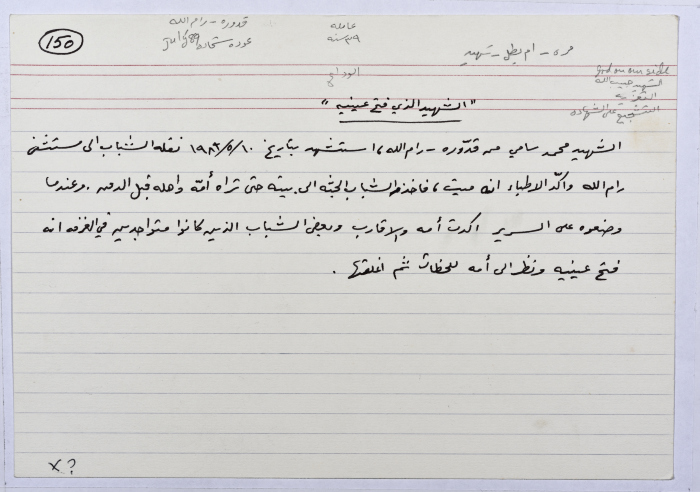 150
قدوره - رام الله
عوده شحاده July 89
عامله
٣٩ سنه
مرى - ام بطل - شهيد
الوداع
God on our side
الشهيد حبيب الله
التعزية
التشجيع على الشهاده
"الشهيد الذي فتح عينيه"
الشهيد محمد سامي من قدّوره - رام الله، استشهد بتاريخ ١٠/٥/١٩٨٣ نقله الشباب الى مستشفى
رام الله واكّد الاطباء انه ميت، فاخذ الشباب الجثه الى بيته حتى تراه أمّه واهله قبل الدفن. وعندما
وضعوه على السرير اكدت أمه والاقارب وبعض الشباب الذين كانوا متواجدين في الغرفه انه
فتح عينيه ونظر الى أمه للحظات ثم اغلقها.
x?